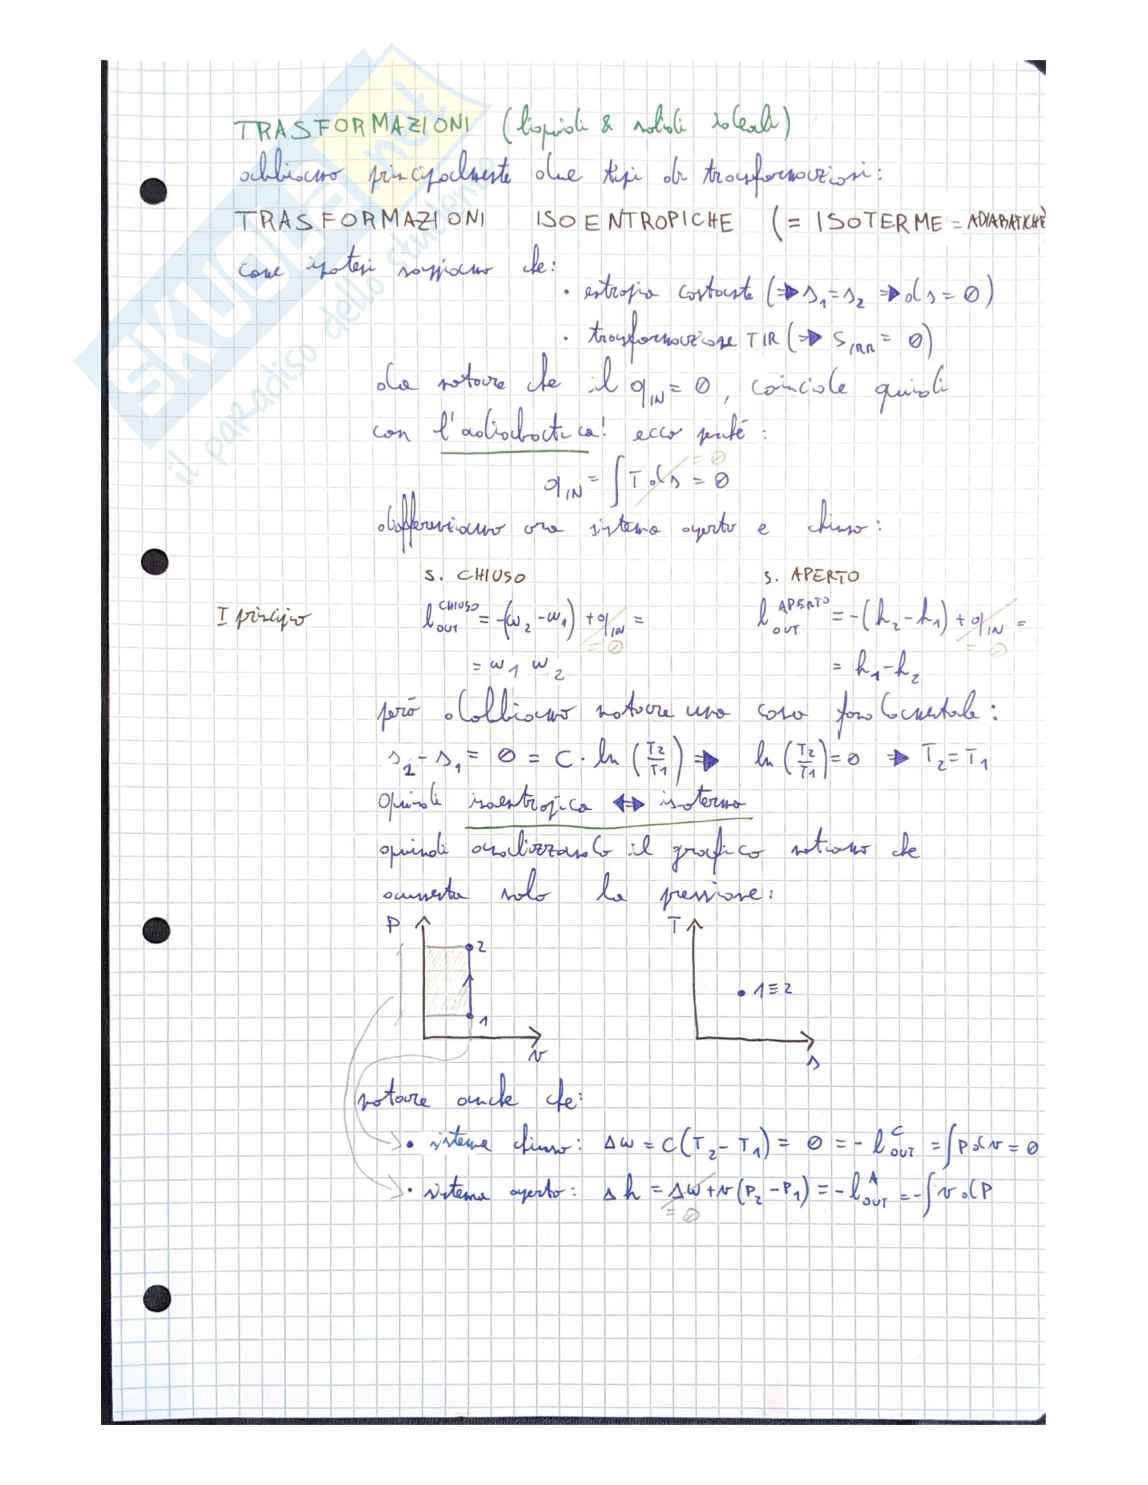 TRASFORMAZIONI (liquidi & solidi ideali)
abbiamo principalmente due tipi di trasformazioni:
TRASFORMAZIONI ISOENTROPICHE (= ISOTERME = ADIABATICHE
come ipotesi sappiamo che:
• entropia costante (⇒ s₁=s₂ ⇒ ds=0)
• trasformazione TIR (⇒ S_IRR = 0)
da notare che il q_IN = 0, coincide quindi
con l'adiabatica! ecco perché:
q_IN = ∫ T ds = 0
= 0
differenziamo ora sistema aperto e chiuso:
S. CHIUSO S. APERTO
I principio l_OUT^CHIUSO = -(u₂-u₁) + q_IN = l_OUT^APERTO = -(h₂-h₁) + q_IN =
= 0 = 0
= u₁ u₂ = h₁-h₂
però dobbiamo notare una cosa fondamentale:
s₂-s₁ = 0 = C · ln (T₂/T₁) ⇒ ln (T₂/T₁) = 0 ⇒ T₂=T₁
quindi isoentropica ⇔ isoterma
quindi analizzando il grafico notiamo che
aumenta solo la pressione:
P T
2
1≡2
1
v s
notare anche che:
• sistema chiuso: Δu = C(T₂-T₁) = 0 = - l_OUT^C = ∫ P dv = 0
• sistema aperto: Δh = Δu + v(P₂-P₁) = - l_OUT^A = - ∫ v dP
= 0
SKUOLA.net
il paradiso dello studente